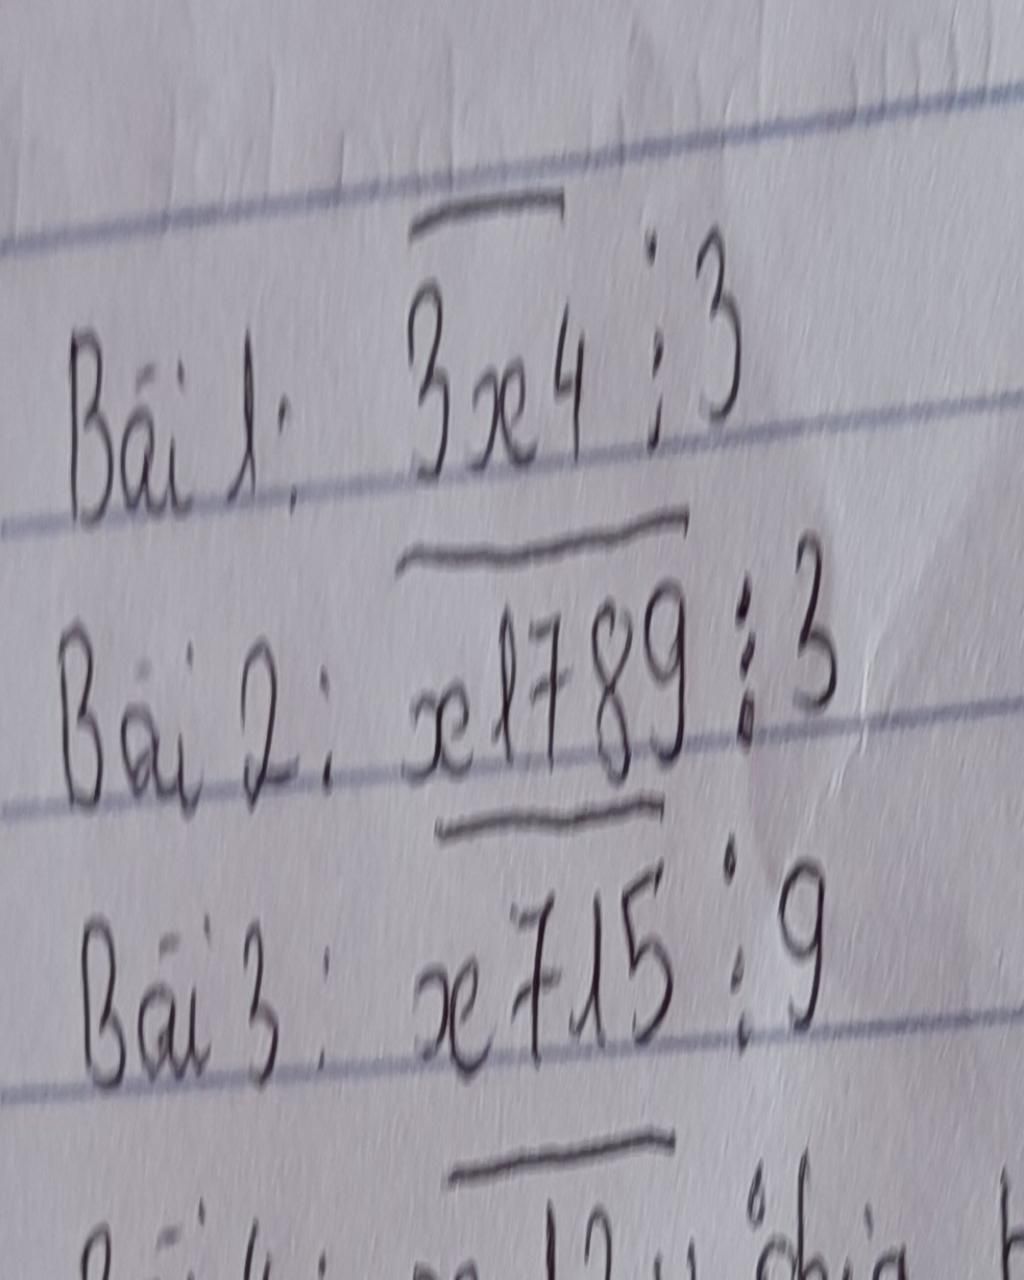 Bài 1: 3x4 ⋮ 3
Bài 2: x1789 ⋮ 3
Bài 3: x715 ⋮ 9